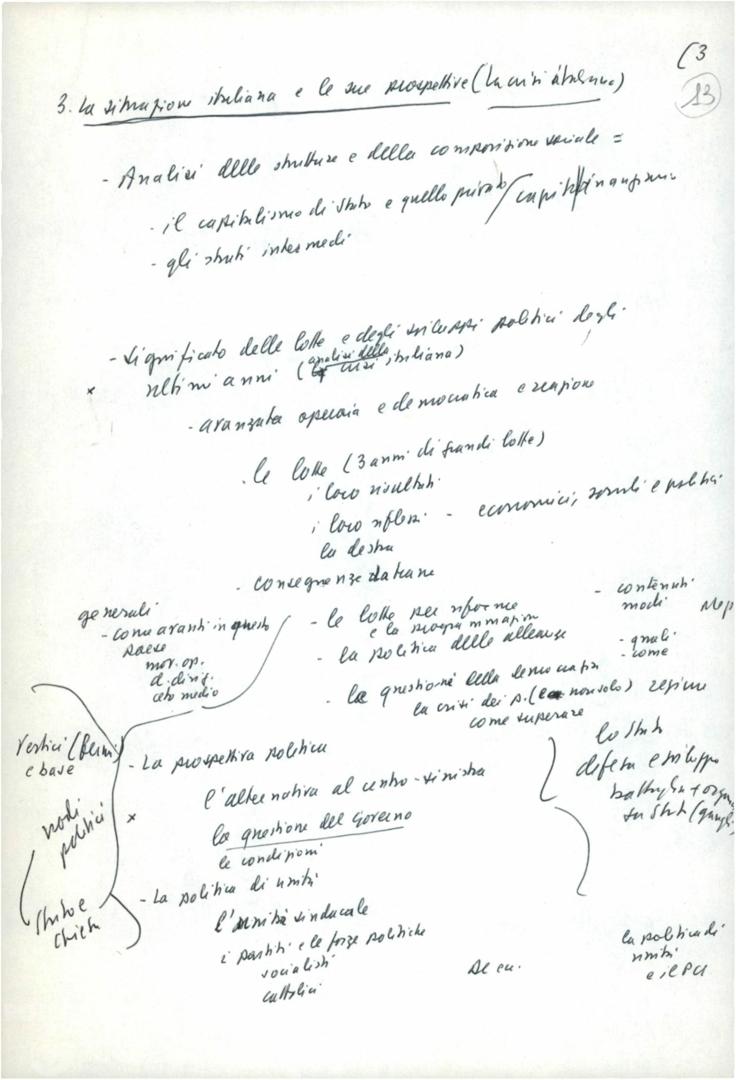 (3
13
3. La situazione italiana e le sue prospettive (la crisi italiana)
- Analisi delle strutture e della composizione sociale =
- il capitalismo di Stato e quello privato / capit.
- gli strati intermedi
- Significato delle lotte e degli sviluppi politici degli
x ultimi anni (analisi della crisi italiana)
- avanzata operaia e democratica e reazione
- le lotte (3 anni di grandi lotte)
i loro risultati
i loro riflessi - economici, sociali e politici
la destra
- conseguenze da trarne
generali
- come avanti in questo
paese
mov. op.
cl. dirig.
ceto medio
- le lotte per riforme
e la programmazione
- contenuti
modi
- la politica delle alleanze
- quali
- come
- la questione della democrazia
la crisi dei p. (non solo) regime
come superare
Vertici
e base
nodi
politici
Stato e
Chiesa
- La prospettiva politica
x l'alternativa al centro-sinistra
la questione del Governo
le condizioni
lo Stato
difesa e sviluppo
battaglia +
su Stato
- La politica di unità
l'unità sindacale
i partiti e le forze politiche
socialisti
cattolici
la politica di
unità
e il PCI